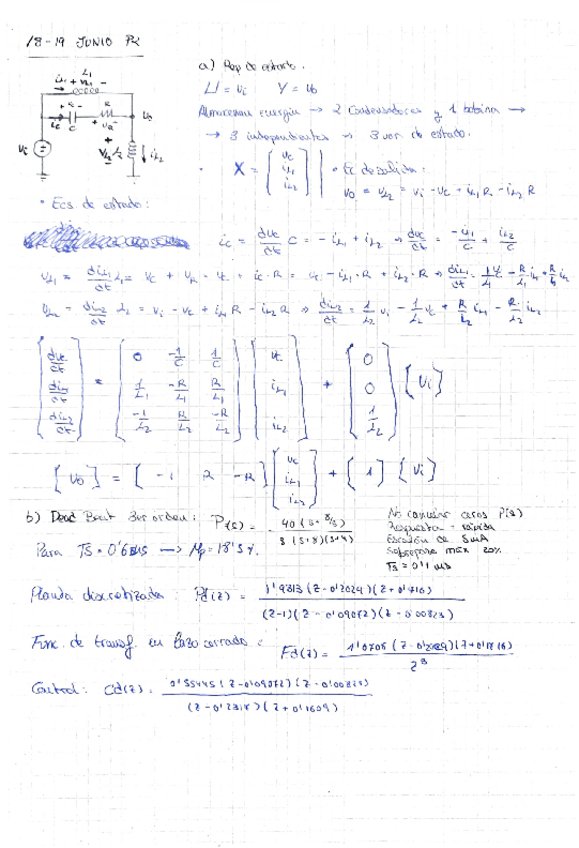 18-19 JUNIO P2
a) Rep de estado.
U = Vi   Y = Vo
Almacenan energía → 2 Condensadores y 1 bobina →
→ 3 independientes → 3 var. de estado.
X = [Vc iL1 iL2]   • Ec de salida:
Vo = VL2 = Vi - Vc + iL1 R - iL2 R
L1
iL1 + VL1 -
+ Vc - R
ic C + VR - Vo
Vi + VL2 L2 iL2
• Ecs de estado:
ic = dVc/dt C = -iL1 + iL2 → dVc/dt = -iL1/C + iL2/C
VL1 = diL1/dt L1 = Vc + VR = Vc + ic · R = Vc - iL1 · R + iL2 · R → diL1/dt = 1/L1 Vc - R/L1 iL1 + R/L1 iL2
VL2 = diL2/dt L2 = Vi - Vc + iL1 R - iL2 R ⇒ diL2/dt = 1/L2 Vi - 1/L2 Vc + R/L2 iL1 - R/L2 iL2
[dVc/dt] = [0 -1/C 1/C] [Vc] + [0] [Vi]
[diL1/dt] [1/L1 -R/L1 R/L1] [iL1] [0]
[diL2/dt] [-1/L2 R/L2 -R/L2] [iL2] [1/L2]
[Vo] = [-1 2 -R] [Vc iL1 iL2] + [1] [Vi]
b) Dead Beat 3er orden: P(s) = 40(s+8/3) / s(s+8)(s+4)
No cancelar ceros P(s)
Respuesta + rápida
Escalón de
Sobrepaso máx 20%
Ts = 0'1
Para TS = 0'6 → Mp = 18'5%.
Planta discretizada: Pd(z) = 1'9313(z-0'2029)(z+0'1716) / (z-1)(z-0'09072)(z-0'00823)
Func. de transf. en lazo cerrado: Fd(z) = 1'0705(z-0'2029)(z+0'1716) / z³
Control: Cd(z) = 0'55445(z-0'09072)(z-0'00823) / (z-0'2318)(z+0'1609)